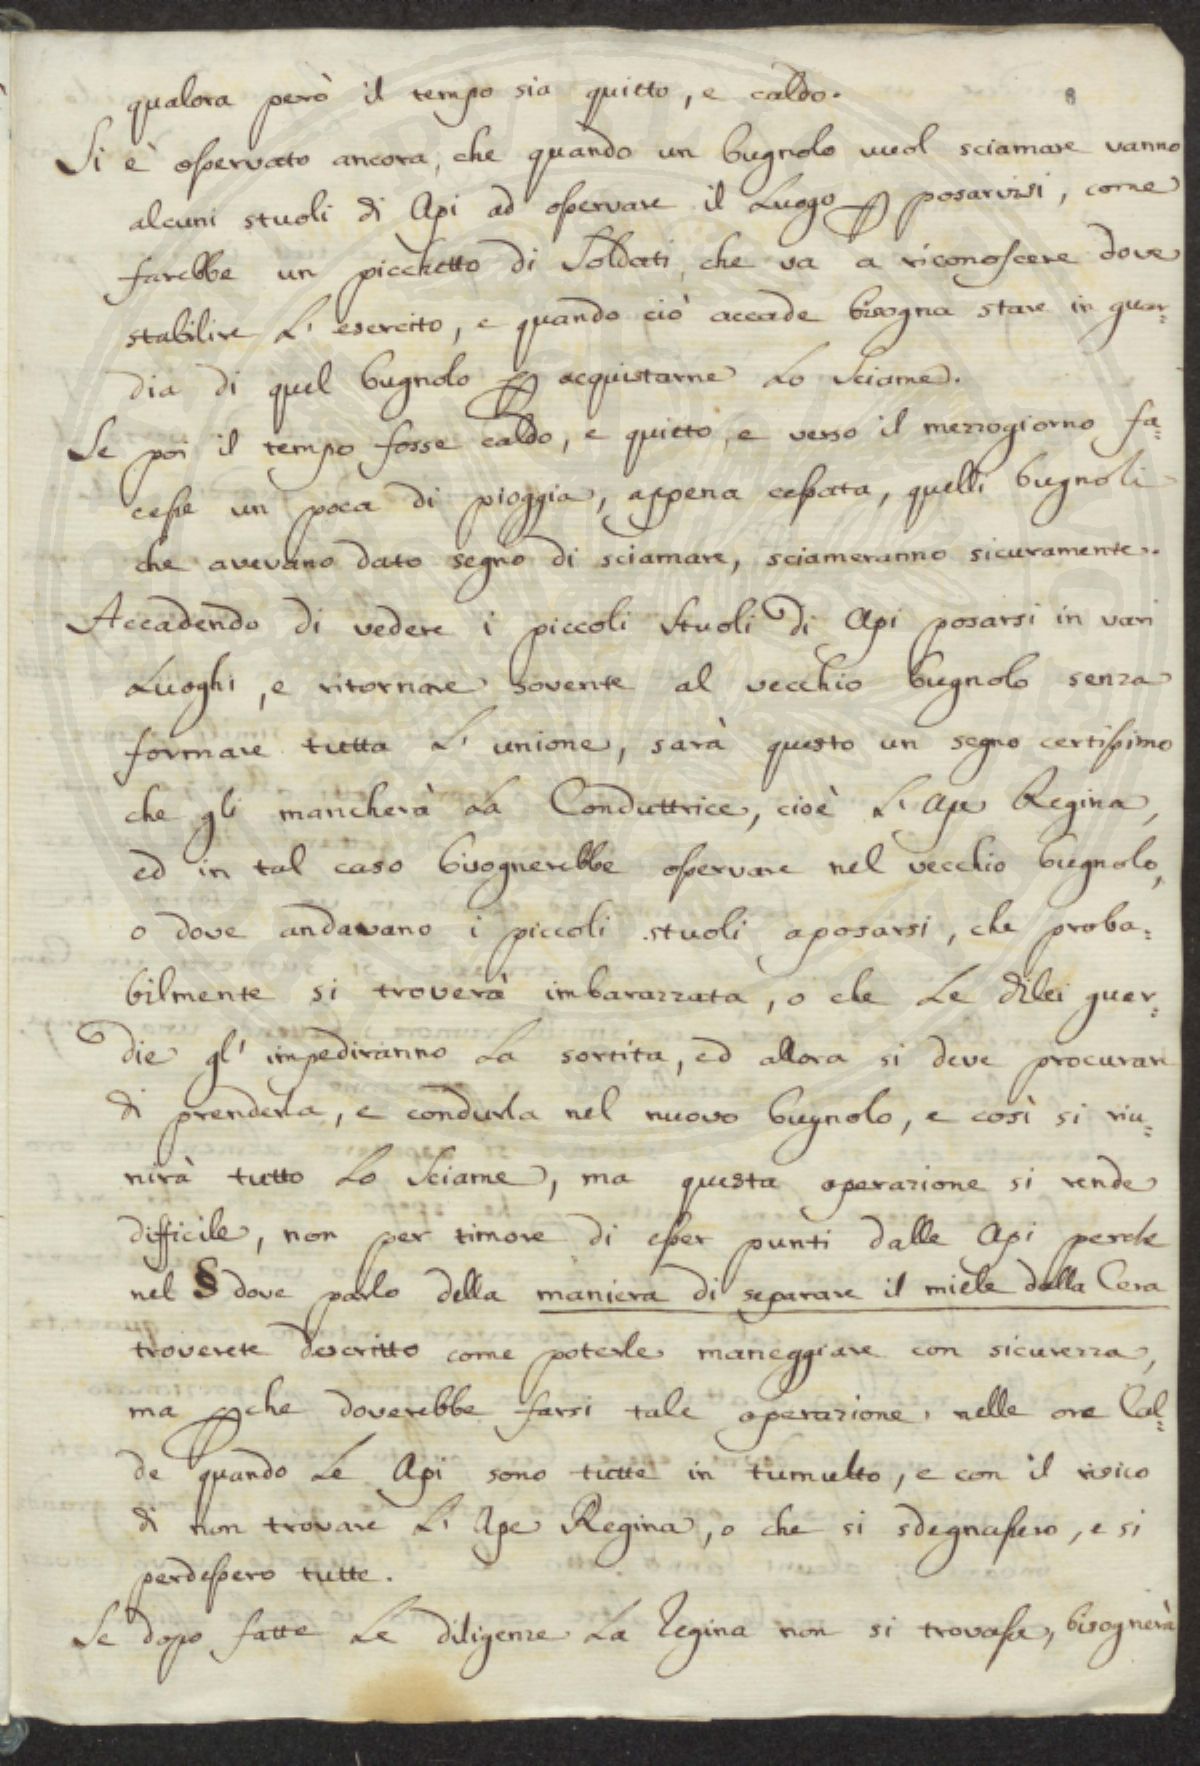 8
qualora però il tempo sia quieto, e caldo.
Si è osservato ancora, che quando un bugnolo vuol sciamare vanno
alcuni stuoli di Api ad osservare il Luogo per posarvisi, come
farebbe un picchetto di Soldati, che va a riconoscere dove
stabilire L'esercito, e quando ciò accade bisogna stare in guar=
dia di quel bugnolo per acquistarne Lo Sciame.
Se poi il tempo fosse caldo, e quieto, e verso il mezzogiorno fa=
cesse un poca di pioggia, appena cessata, quelli bugnoli
che avevano dato segno di sciamare, sciameranno sicuramente..
Accadendo di vedere i piccoli Stuoli di Api posarsi in vari
Luoghi, e ritornare sovente al vecchio bugnolo senza
formare tutta L'unione, sarà questo un segno certissimo
che gli mancherà La Conduttrice, cioè L'Ape Regina,
ed in tal caso bisognerebbe osservare nel vecchio bugnolo,
o dove andavano i piccoli stuoli aposarsi, che proba=
bilmente si troverà imbarazzata, o che Le dilei guar=
die gl'impediranno La sortita, ed allora si deve procurare
di prenderla, e condurla nel nuovo bugnolo, e così si riu=
nirà tutto Lo Sciame, ma questa operazione si rende
difficile, non per timore di esser punti dalle Api perche
nel § dove parlo della maniera di separare il miele dalla Cera
troverete descritto come poterle maneggiare con sicurezza,
ma perche doverebbe farsi tale operazione, nelle ore Cal=
de quando Le Api sono tutte in tumulto, e con il risico
di non trovare L'Ape Regina, o che si sdegnassero, e si
perdessero tutte.
Se dopo fatte Le diligenze La Regina non si trovasse, bisognerà